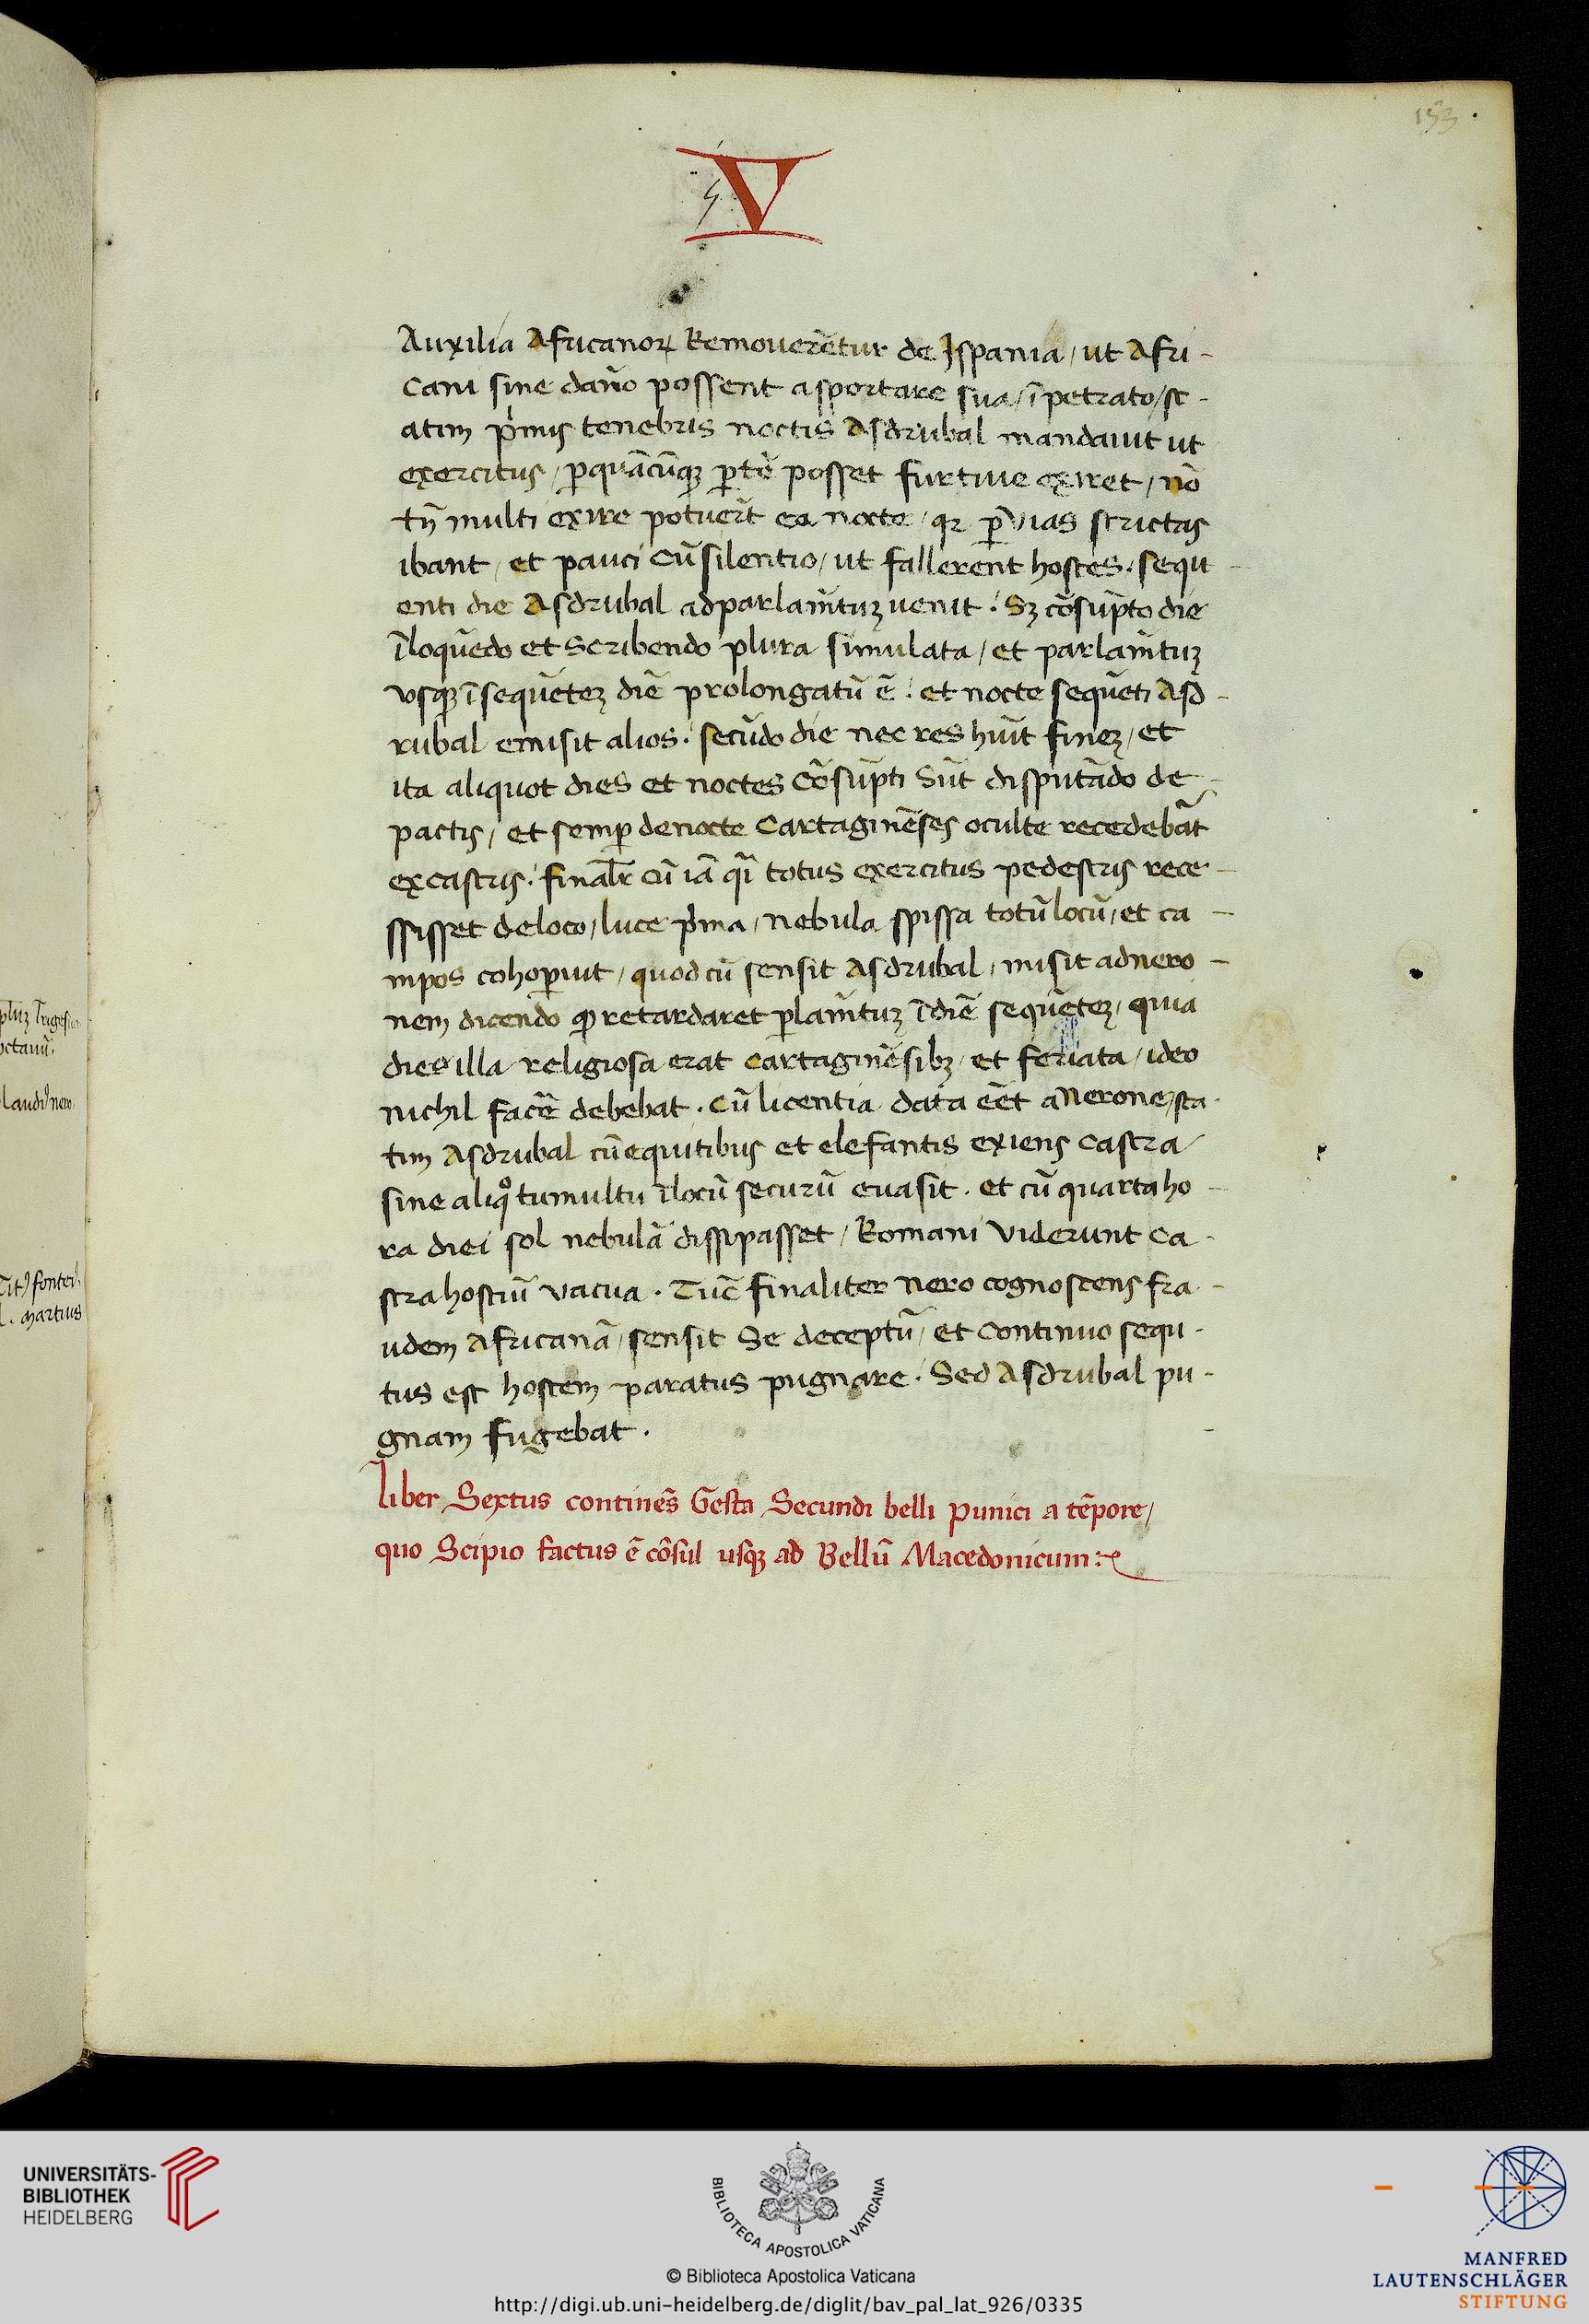 153
V
Auxilia Africanoꝝ Remouerētur de Jspania / ut Afri-
cani sine dan̄o possent asportare sua / īpetrato / st-
atim p̍mis tenebris noctis Asdrubal mandauit ut
exercitus / ꝑquācūqꝫ ꝑtē posset furtiue exiret / nō
tn̄ multi exire potuerūt ea nocte / qꝛ ꝑ uias strictas
ibant / et pauci cū silentio / ut fallerent hostes. sequ-
enti die Asdrubal ad parlam̄tuꝫ uenit. Sꝫ cōsūpto die
ī loquēdo et scribendo plura simulata / et parlam̄tuꝫ
vsqꝫ ī sequēteꝫ diē prolongatū ē. et nocte sequēti Asd-
rubal emisit alios. secūdo die nec res hūit fineꝫ / et
ita aliquot dies et noctes cōsūpti sūt disputādo de
pactis / et semꝑ de nocte Cartaginēses oculte recedebāt
ex castris. finalr̄ cū iā qī totus exercitus pedestris rece-
ssisset de loco / luce p̍ma / nebula spissa totū locū / et ca-
mpos cohoꝑuit / quod cū sensit Asdrubal / misit ad nero-
nem dicendo ꝙ retardaret ꝑlam̄tuꝫ ī diē sequēteꝫ / quia
dies illa religiosa erat Cartaginēsibꝫ / et feriata / ideo
nichil facr̄e debebat. Cū licentia data eēt a Nerone / sta-
tim Asdrubal cū equitibus et elefantis exiens castra /
sine aliqͦ tumultu ī locū securū euasit. et cū quarta ho-
ra diei sol nebulā dissipasset / Romani viderunt ca-
stra hostiū vacua. Tūc finaliter nero cognoscens fra-
udem Africanā / sensit se deceptū / et continuo sequ-
tus est hostem paratus pugnare. Sed Asdrubal pu-
gnam fugebat.
Liber Sextus continēs Gesta Secundi belli punici a tēpore /
quo Scipio factus ē cōsul usqꝫ ad Bellū Macedonicum:
octauū.
martius
UNIVERSITÄTS-
BIBLIOTHEK
HEIDELBERG
BIBLIOTECA APOSTOLICA VATICANA
© Biblioteca Apostolica Vaticana
http://digi.ub.uni-heidelberg.de/diglit/bav_pal_lat_926/0335
MANFRED
LAUTENSCHLÄGER
STIFTUNG